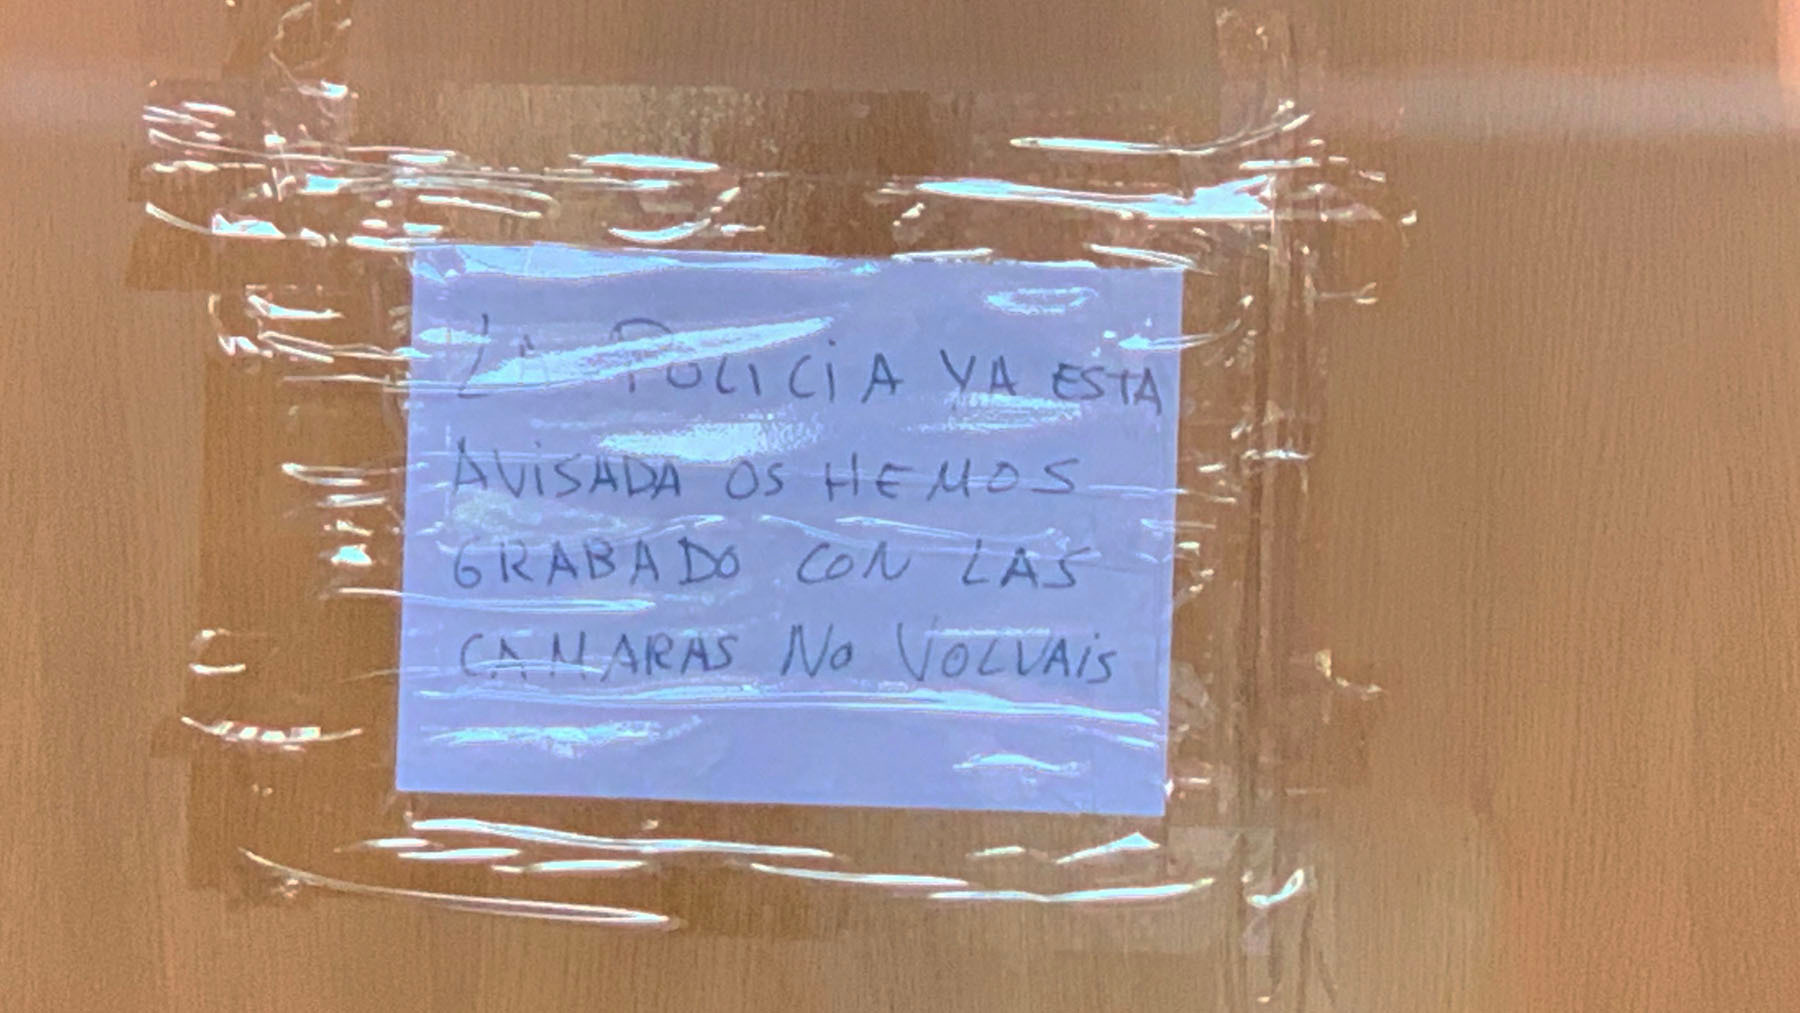 LA POLICIA YA ESTA
AVISADA OS HEMOS
GRABADO CON LAS
CAMARAS NO VOLVAIS